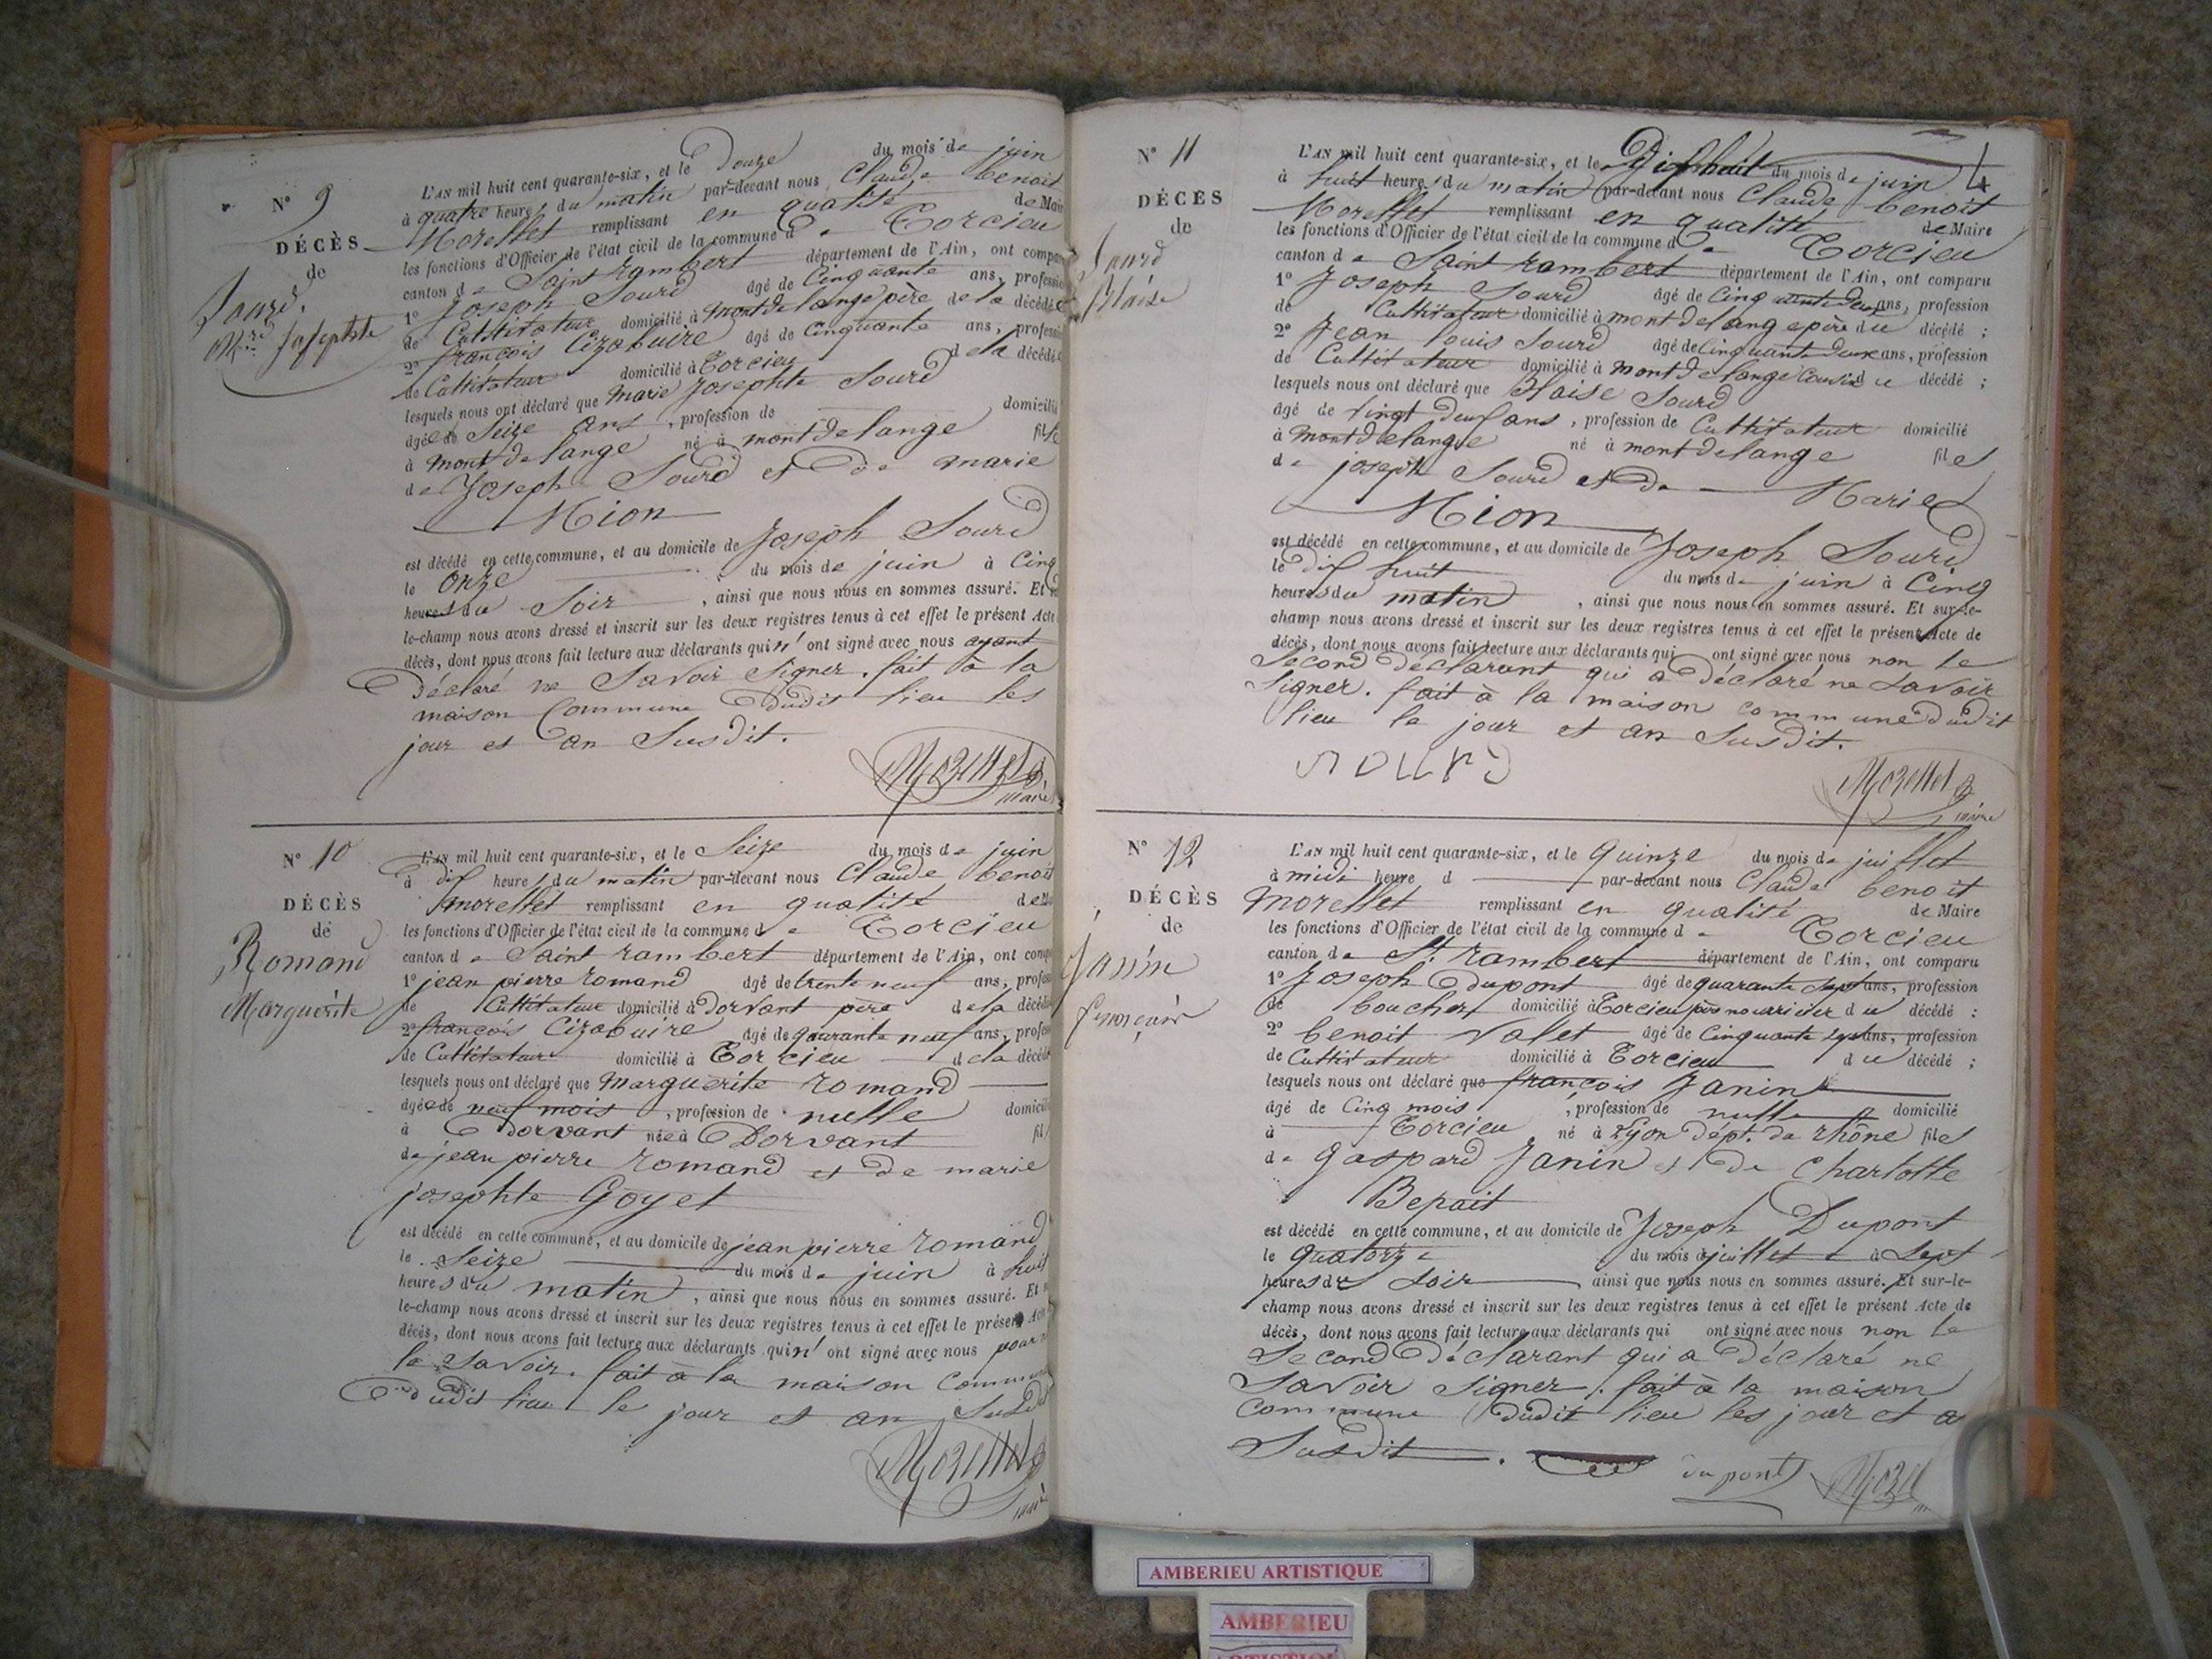 N° 9
DÉCÈS
de
Sourd
Mrie Josephte
L'AN mil huit cent quarante-six, et le Douze du mois de juin
à quatre heures du matin par-devant nous Claude benoit
Morellet remplissant en qualité de Mair
les fonctions d'Officier de l'état civil de la commune de Torcieu
canton de Saint rambert département de l'Ain, ont compa
1° Joseph Sourd âgé de Cinquante ans, professio
de Cultivateur domicilié à montdelange père de la décédée
2° françois Cizabuire âgé de Cinquante ans, professi
de Cultivateur domicilié à Torcieu de la décédée
lesquels nous ont déclaré que Marie Josephte Sourd
âgée de Seize ans, profession de domicilié
à mont de lange né à montdelange fille
de Joseph Sourd et de marie
Mion
est décédé en cette commune, et au domicile de Joseph Sourd
le onze du mois de juin à Cinq
heures du Soir, ainsi que nous nous en sommes assuré. Et
le-champ nous avons dressé et inscrit sur les deux registres tenus à cet effet le présent Acte
décès, dont nous avons fait lecture aux déclarants qui n' ont signé avec nous ayant
Déclaré ne Savoir Signer. fait à la
maison Commune dudit lieu les
jour et an Susdit.
Morellet
maire
N° 10
DÉCÈS
de
Romand
Marguerite
L'AN mil huit cent quarante-six, et le Seize du mois de juin
à dix heures du matin par-devant nous Claude benoit
morellet remplissant en qualité de
les fonctions d'Officier de l'état civil de la commune de Torcieu
canton de Saint rambert département de l'Ain, ont comp
1° jean pierre romand âgé de trente neuf ans, profes
de Cultivateur domicilié à Dorvant père de la décéd
2° françois Cizabuire âgé de quarante neuf ans, profes
de Cultivateur domicilié à Torcieu de la décéd
lesquels nous ont déclaré que Marguerite romand
âgée de neuf mois, profession de nulle domicili
à Dorvant née à Dorvant fil
de jean pierre romand et de marie
josephte Goyet
est décédé en cette commune, et au domicile de jean pierre romand
le Seize du mois de juin à huit
heures du matin, ainsi que nous nous en sommes assuré. Et
le-champ nous avons dressé et inscrit sur les deux registres tenus à cet effet le présent Acte
décès, dont nous avons fait lecture aux déclarants qui n' ont signé avec nous pour
le Savoir. fait à la maison Commune
dudit lieu le jour et an Susdit
Morellet
maire
N° 11
DÉCÈS
de
Sourd
Blaise
4
L'AN mil huit cent quarante-six, et le Dix huit du mois de juin
à huit heures du matin par-devant nous Claude benoit
Morellet remplissant en qualité de Maire
les fonctions d'Officier de l'état civil de la commune de Torcieu
canton de Saint rambert département de l'Ain, ont comparu
1° Joseph Sourd âgé de Cinquante deux ans, profession
de Cultivateur domicilié à montdelange père du décédé ;
2° Jean louis Sourd âgé de Cinquante deux ans, profession
de Cultivateur domicilié à montdelange Cousin du décédé ;
lesquels nous ont déclaré que Blaise Sourd
âgé de Vingt deux ans, profession de Cultivateur domicilié
à montdelange né à montdelange fils
de joseph Sourd et de Marie
Mion
est décédé en cette commune, et au domicile de Joseph Sourd
le dix huit du mois de juin à Cinq
heures du matin, ainsi que nous nous en sommes assuré. Et sur-le-
champ nous avons dressé et inscrit sur les deux registres tenus à cet effet le présent Acte de
décès, dont nous avons fait lecture aux déclarants qui ont signé avec nous non le
Second déclarant qui a Déclaré ne Savoir
Signer. fait à la maison commune dudit
lieu le jour et an Susdit.
sourd
Morellet
maire
N° 12
DÉCÈS
de
Janin
françois
L'AN mil huit cent quarante-six, et le Quinze du mois de juillet
à midi heure d par-devant nous Claude benoit
morellet remplissant en qualité de Maire
les fonctions d'Officier de l'état civil de la commune de Torcieu
canton de St. rambert département de l'Ain, ont comparu
1° Joseph Dupont âgé de quarante sept ans, profession
de boucher domicilié à Torcieu père nourricier du décédé ;
2° benoit Valet âgé de Cinquante sept ans, profession
de Cultivateur domicilié à Torcieu du décédé ;
lesquels nous ont déclaré que françois Janin
âgé de Cinq mois, profession de nulle domicilié
à Torcieu né à Lyon Dépt. du rhône fils
de Gaspard Janin et de Charlotte
Bepait
est décédé en cette commune, et au domicile de Joseph Dupont
le quatorze du mois de juillet à Sept
heures du Soir ainsi que nous nous en sommes assuré. Et sur-le-
champ nous avons dressé et inscrit sur les deux registres tenus à cet effet le présent Acte de
décès, dont nous avons fait lecture aux déclarants qui ont signé avec nous non le
Second Déclarant qui a Déclaré ne
Savoir Signer. fait à la maison
Commune dudit lieu les jour et a
Susdit.
dupont
AMBERIEU ARTISTIQUE
AMBERIEU
ARTISTIQUE